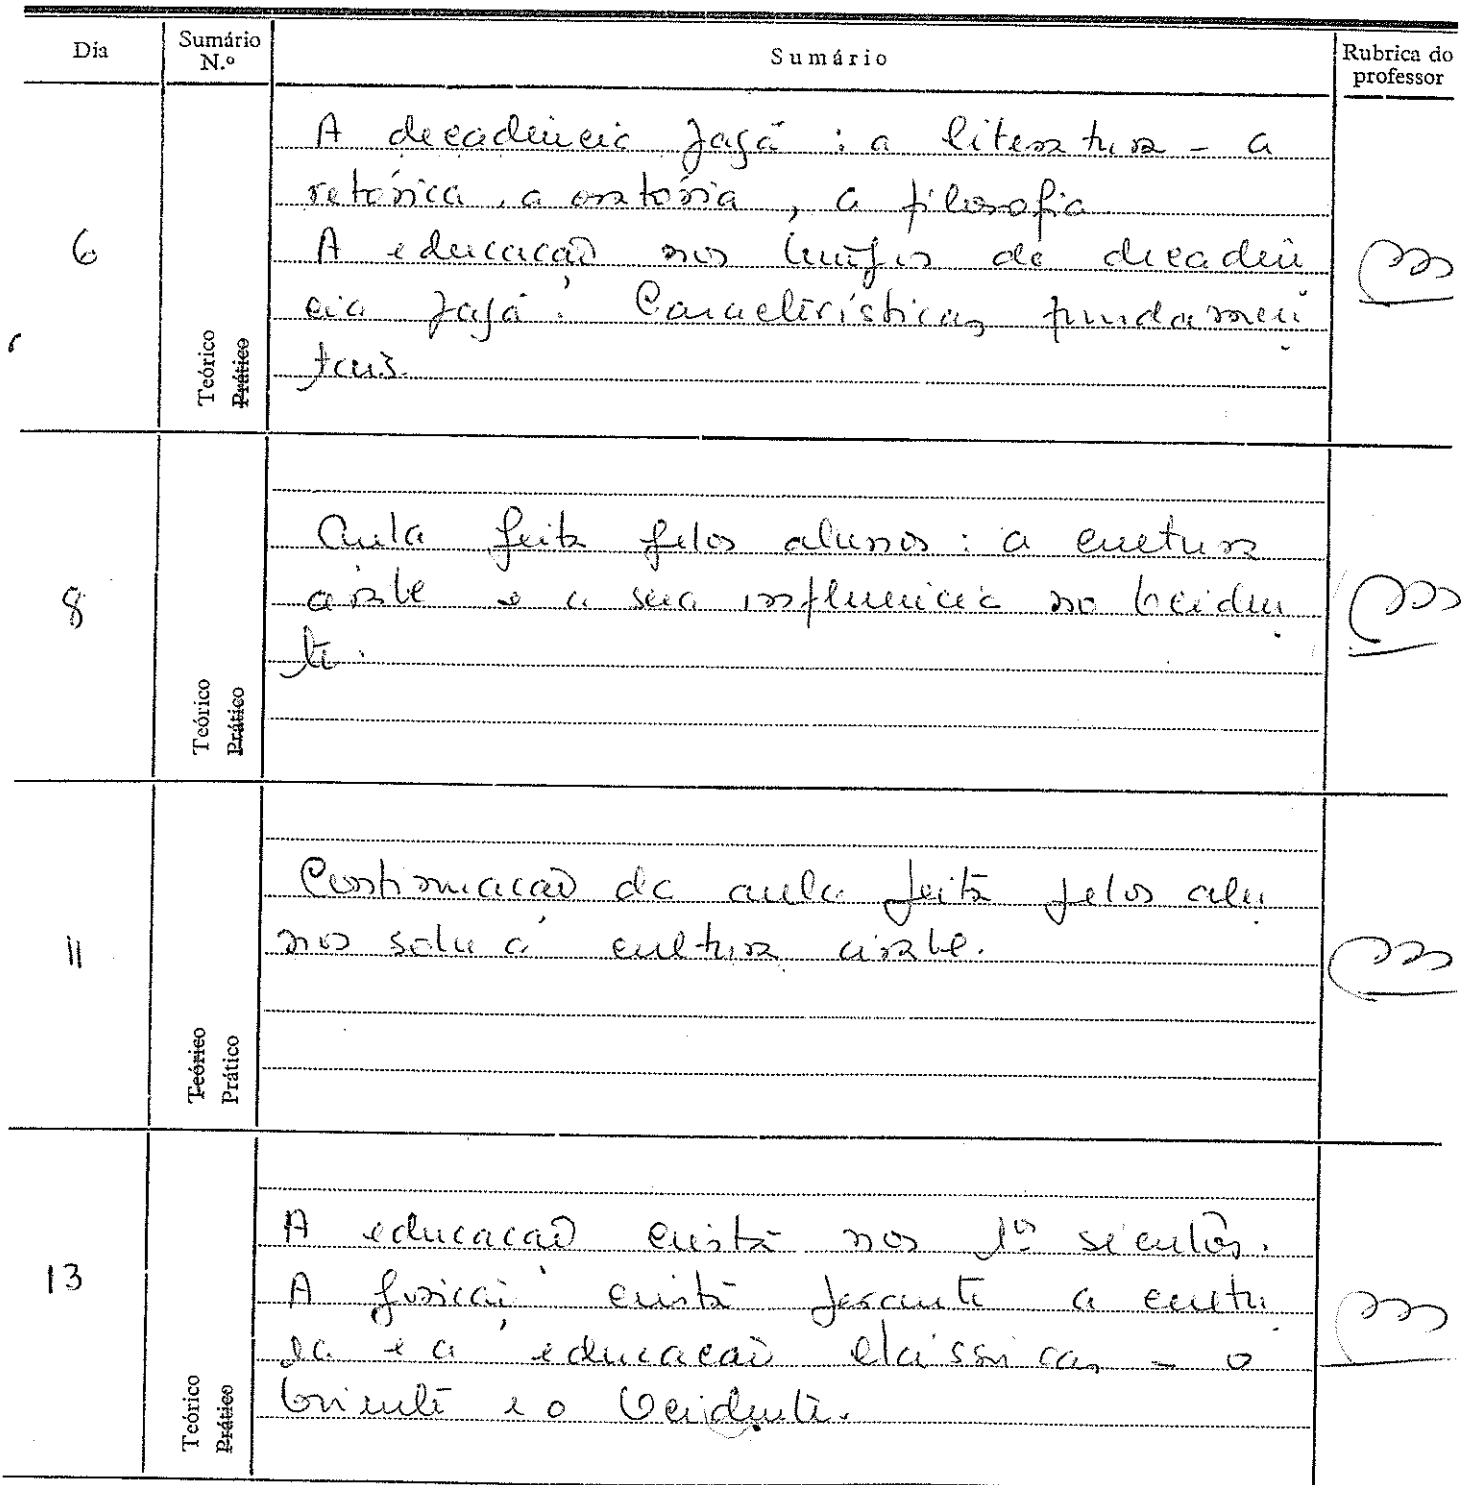 Dia
Sumário N.º
Sumário
Rubrica do professor
6
Teórico
Prático
A decadência pagã: a literatura – a
retórica, a oratória, a filosofia
A educação nos tempos de decadên
cia pagã. Características fundamen
tais.
8
Teórico
Prático
Aula feita pelos alunos: a cultura
árabe e a sua influência no Ociden
te.
11
Teórico
Prático
Continuação da aula feita pelos alu
nos sobre a cultura árabe.
13
Teórico
Prático
A educação cristã nos 1ºs séculos.
A posição cristã perante a cultu
ra e a educação clássicas – o
Oriente e o Ocidente.